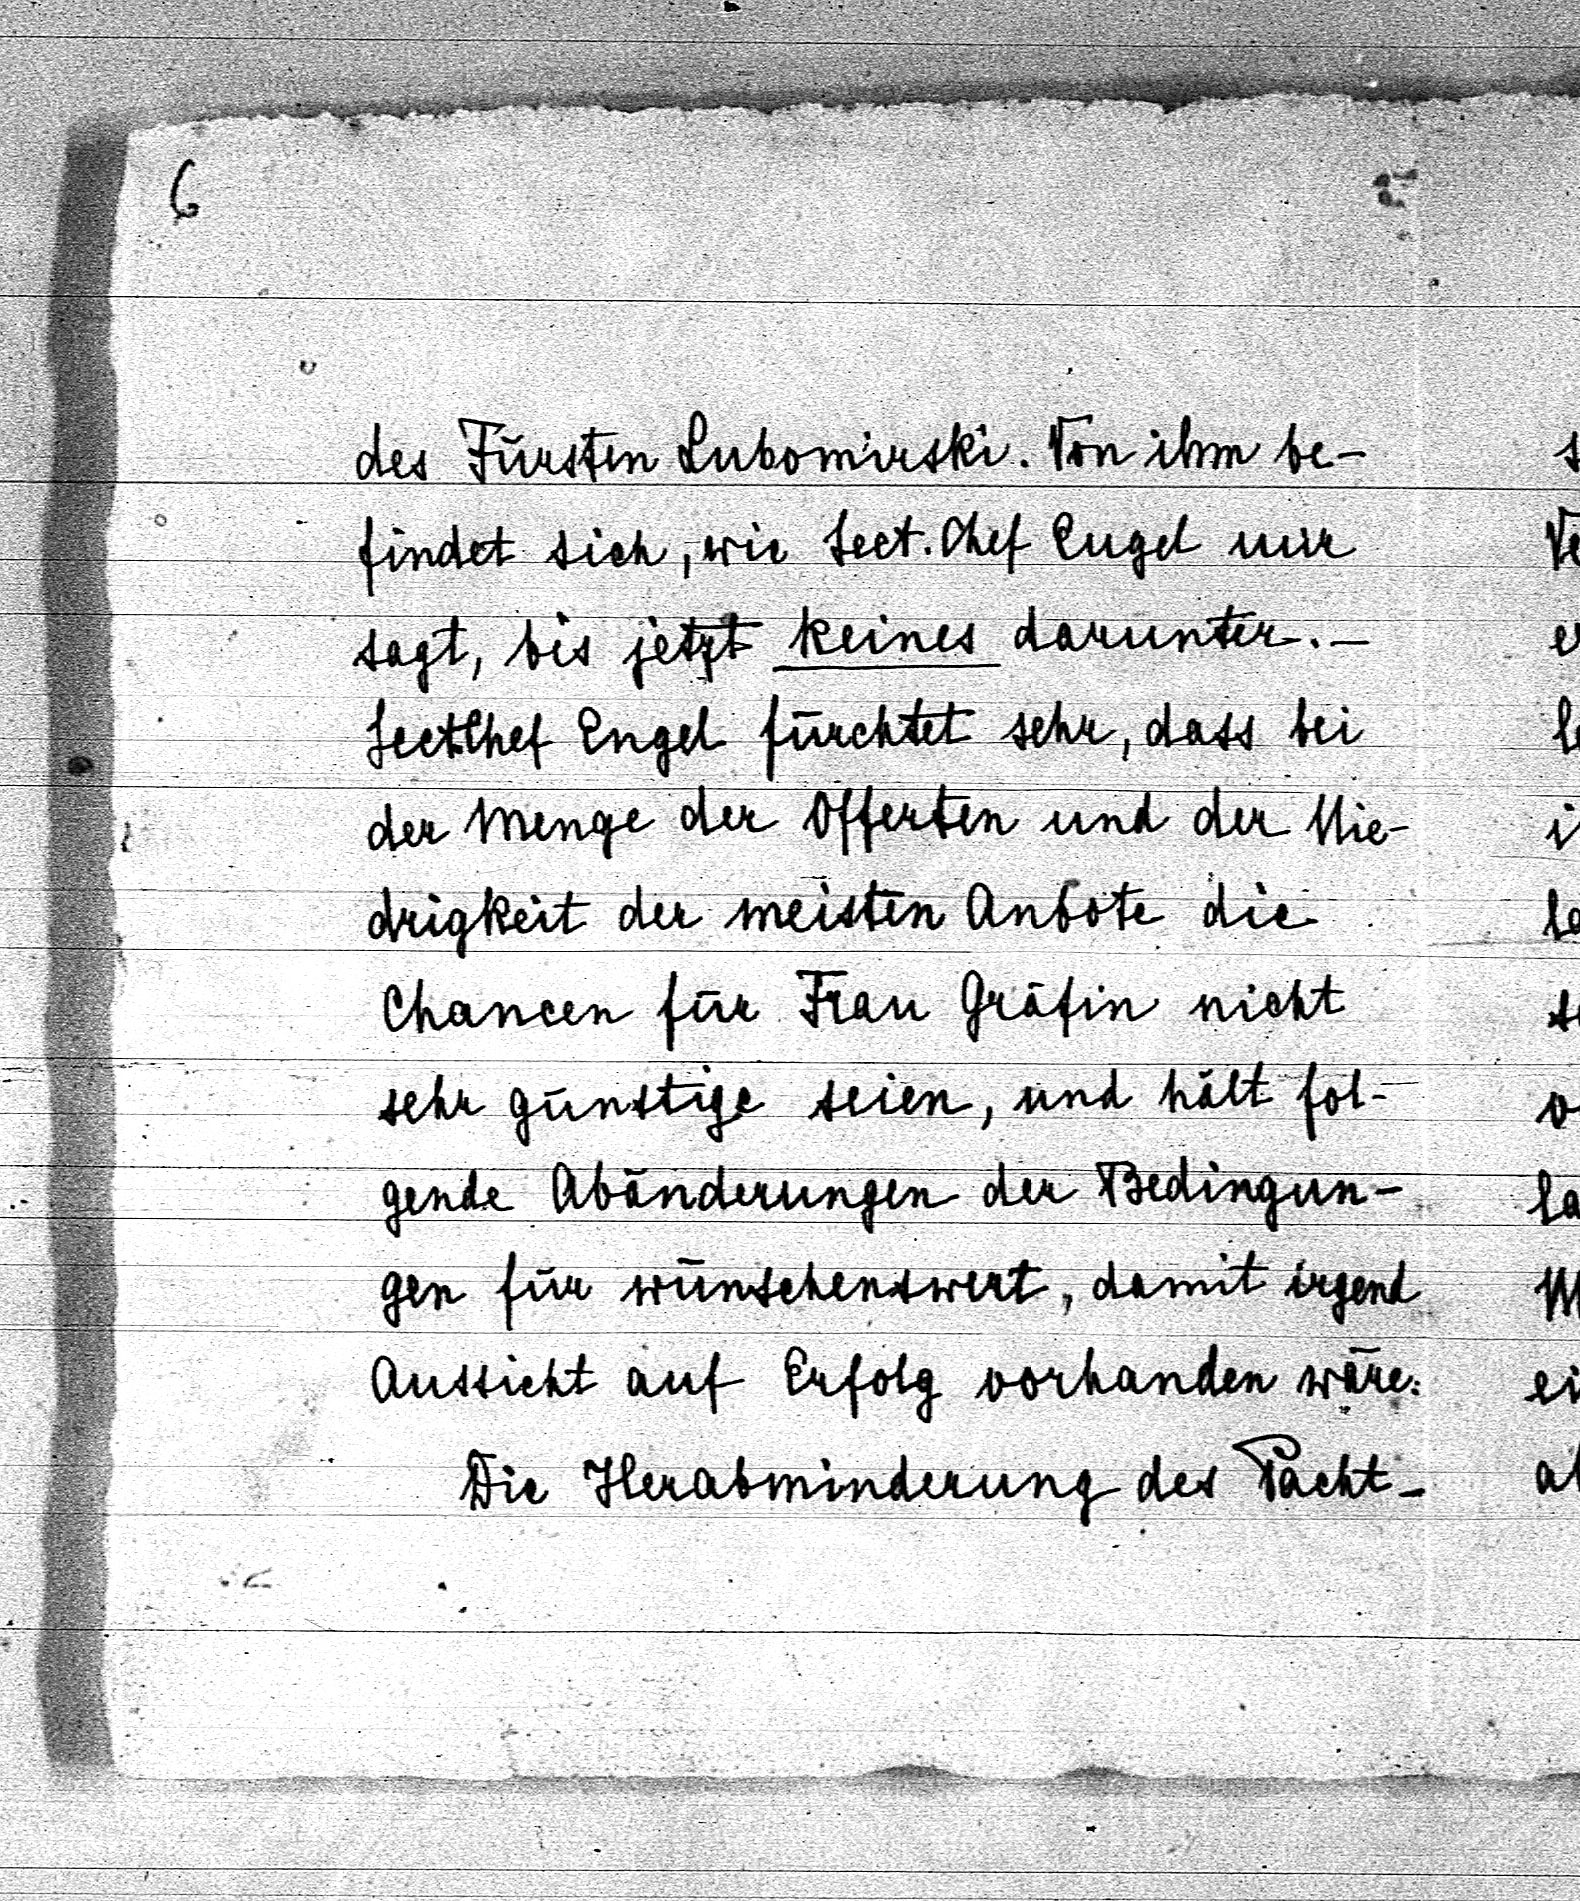 6
des Fürsten Lubomirski. Von ihm be-
findet sich, wie Sect. Chef Engel mir
sagt, bis jetzt keines darunter. –
Sect. Chef Engel fürchtet sehr, dass bei
der Menge der Offerten und der Nie-
drigkeit der meisten Anbote die
Chancen für Frau Gräfin nicht
sehr günstige seien, und hält fol-
gende Abänderungen der Bedingun-
gen für wünschenswert, damit irgend
Aussicht auf Erfolg vorhanden wäre:
Die Herabminderung des Pacht-